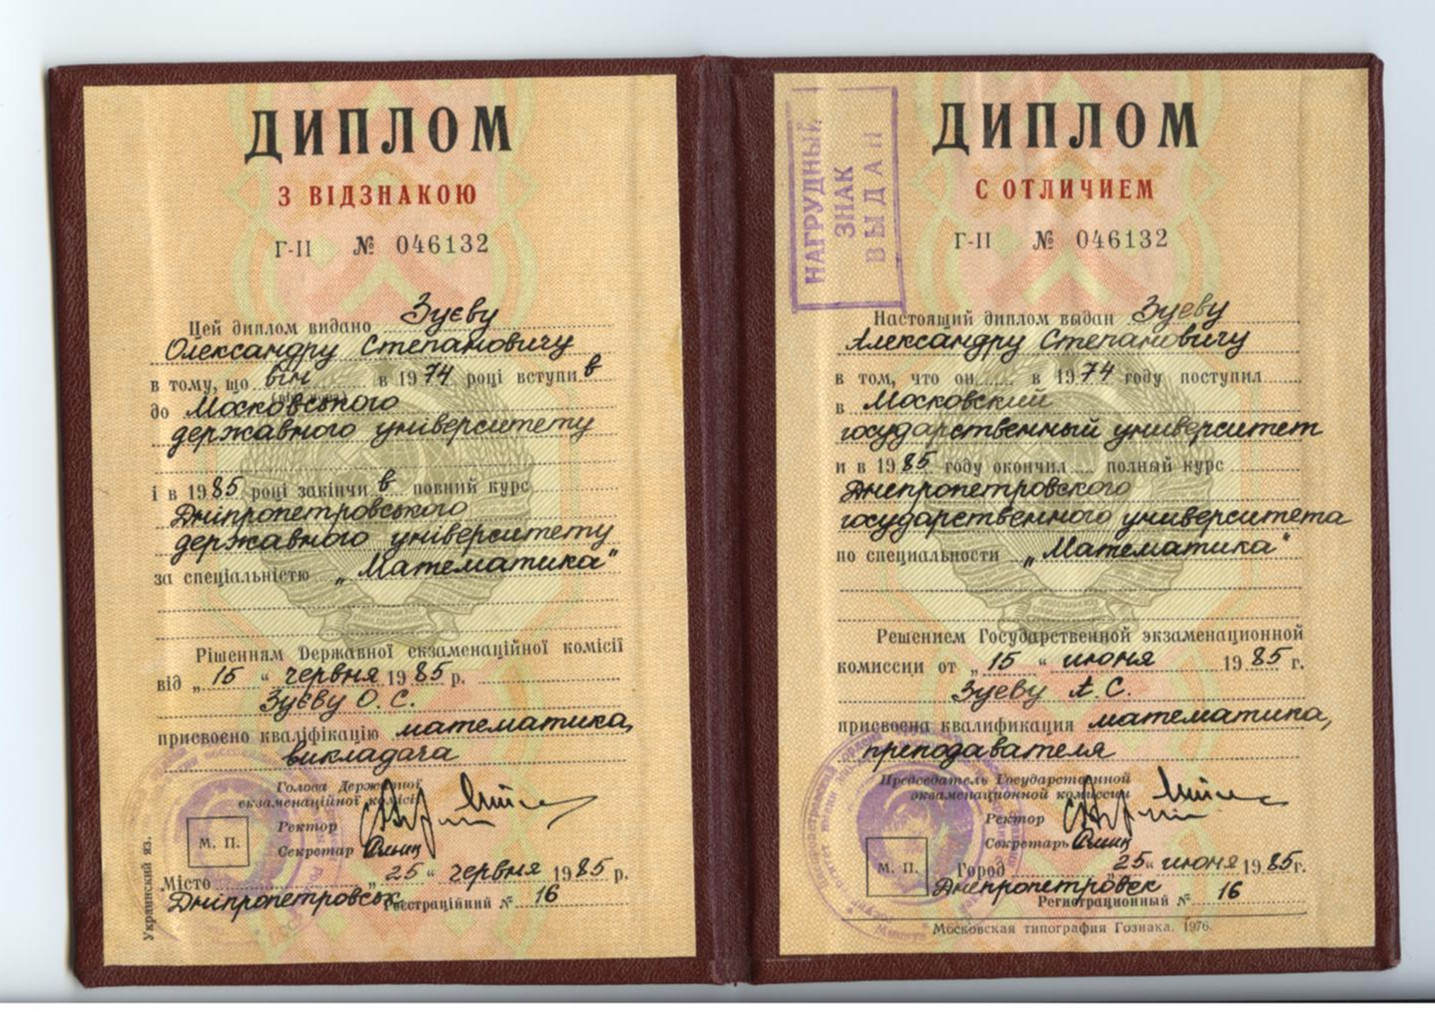 ДИПЛОМ
З ВІДЗНАКОЮ
Г-II № 046132
Цей диплом видано Зуєву
Олександру Степановичу
в тому, що він в 1974 році вступив
до Московського
державного університету
і в 1985 році закінчив повний курс
Дніпропетровського
державного університету
за спеціальністю „Математика“
Рішенням Державної екзаменаційної комісії
від „15“ червня 1985 р.
Зуєву О. С.
присвоєно кваліфікацію математика,
викладача
Голова Державної
екзаменаційної комісії
Ректор
Секретар
М. П.
Місто „25“ червня 1985 р.
Дніпропетровськ Реєстраційний № 16
Украинский яз.
НАГРУДНЫЙ
ЗНАК
ВЫДАН
ДИПЛОМ
С ОТЛИЧИЕМ
Г-II № 046132
Настоящий диплом выдан Зуеву
Александру Степановичу
в том, что он в 1974 году поступил
в Московский
государственный университет
и в 1985 году окончил полный курс
Днепропетровского
государственного университета
по специальности „Математика“
Решением Государственной экзаменационной
комиссии от „15“ июня 1985 г.
Зуеву А. С.
присвоена квалификация математика,
преподавателя
Председатель Государственной
экзаменационной комиссии
Ректор
Секретарь
М. П.
Город „25“ июня 1985г.
Днепропетровск
Регистрационный № 16
Московская типография Гознака. 1976.